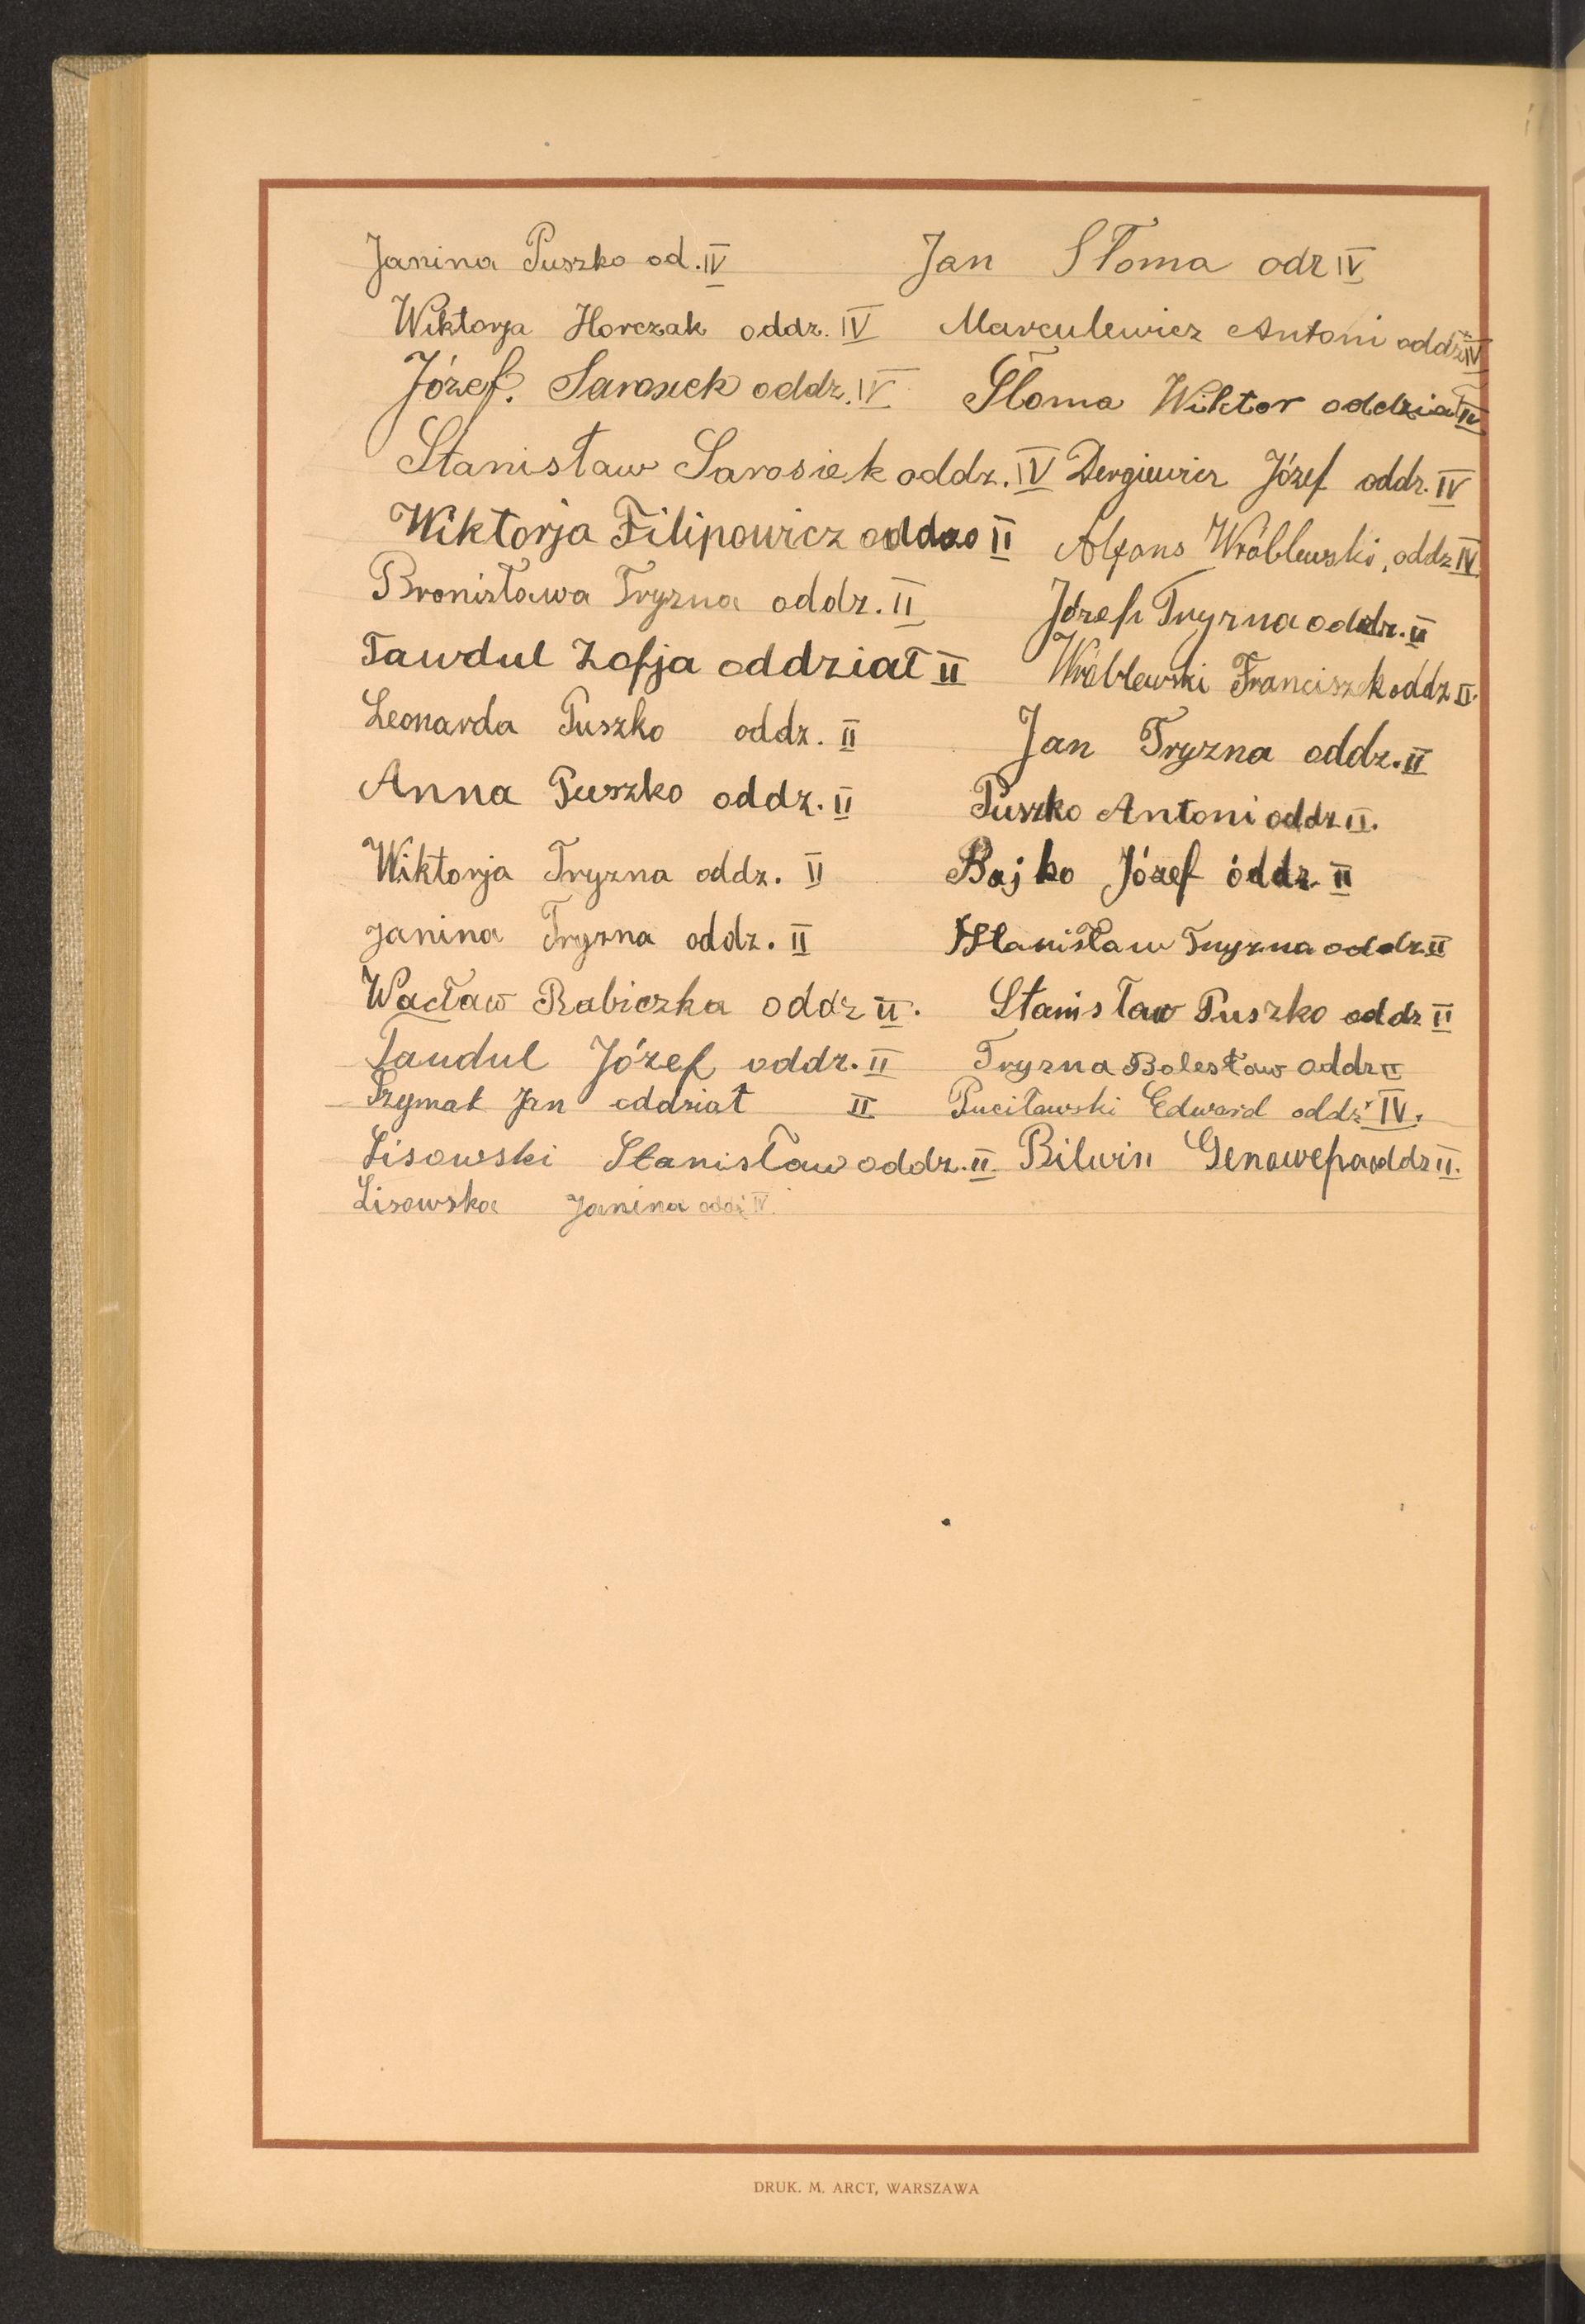 Janina Puszko od. IV
Jan Słoma odz IV
Wiktorja Horczak oddz. IV
Marculewicz Antoni oddz. IV
Józef. Sarosiek oddz. IV
Słoma Wiktor oddział IV
Stanisław Sarosiek oddz. IV
Dergiewicz Józef oddz. IV
Wiktorja Filipowicz II
Alfons Wróblewski, oddz IV
Bronisława Tryzna oddz. II
Józef Tryzna oddz. II
Tawdul Zofja oddział II
Wróblewski Franciszek oddz II
Leonarda Puszko oddz. II
Jan Tryzna oddz. II
Anna Puszko oddz. II
Puszko Antoni oddz II.
Wiktorja Tryzna oddz. II
Bajko Józef oddz. II
Janina Tryzna oddz. II
Stanisław Tryzna oddz II
Wacław Rabiczka oddz II.
Stanisław Puszko oddz II
Taudul Józef oddz. II
Tryzna Bolesław oddz II
Jan oddział II
Puciławski Edward oddz. IV.
Lisowski Stanisław oddz. II
Bilwin Genowefa oddz II.
Lisowska Janina oddz IV.
DRUK. M. ARCT, WARSZAWA